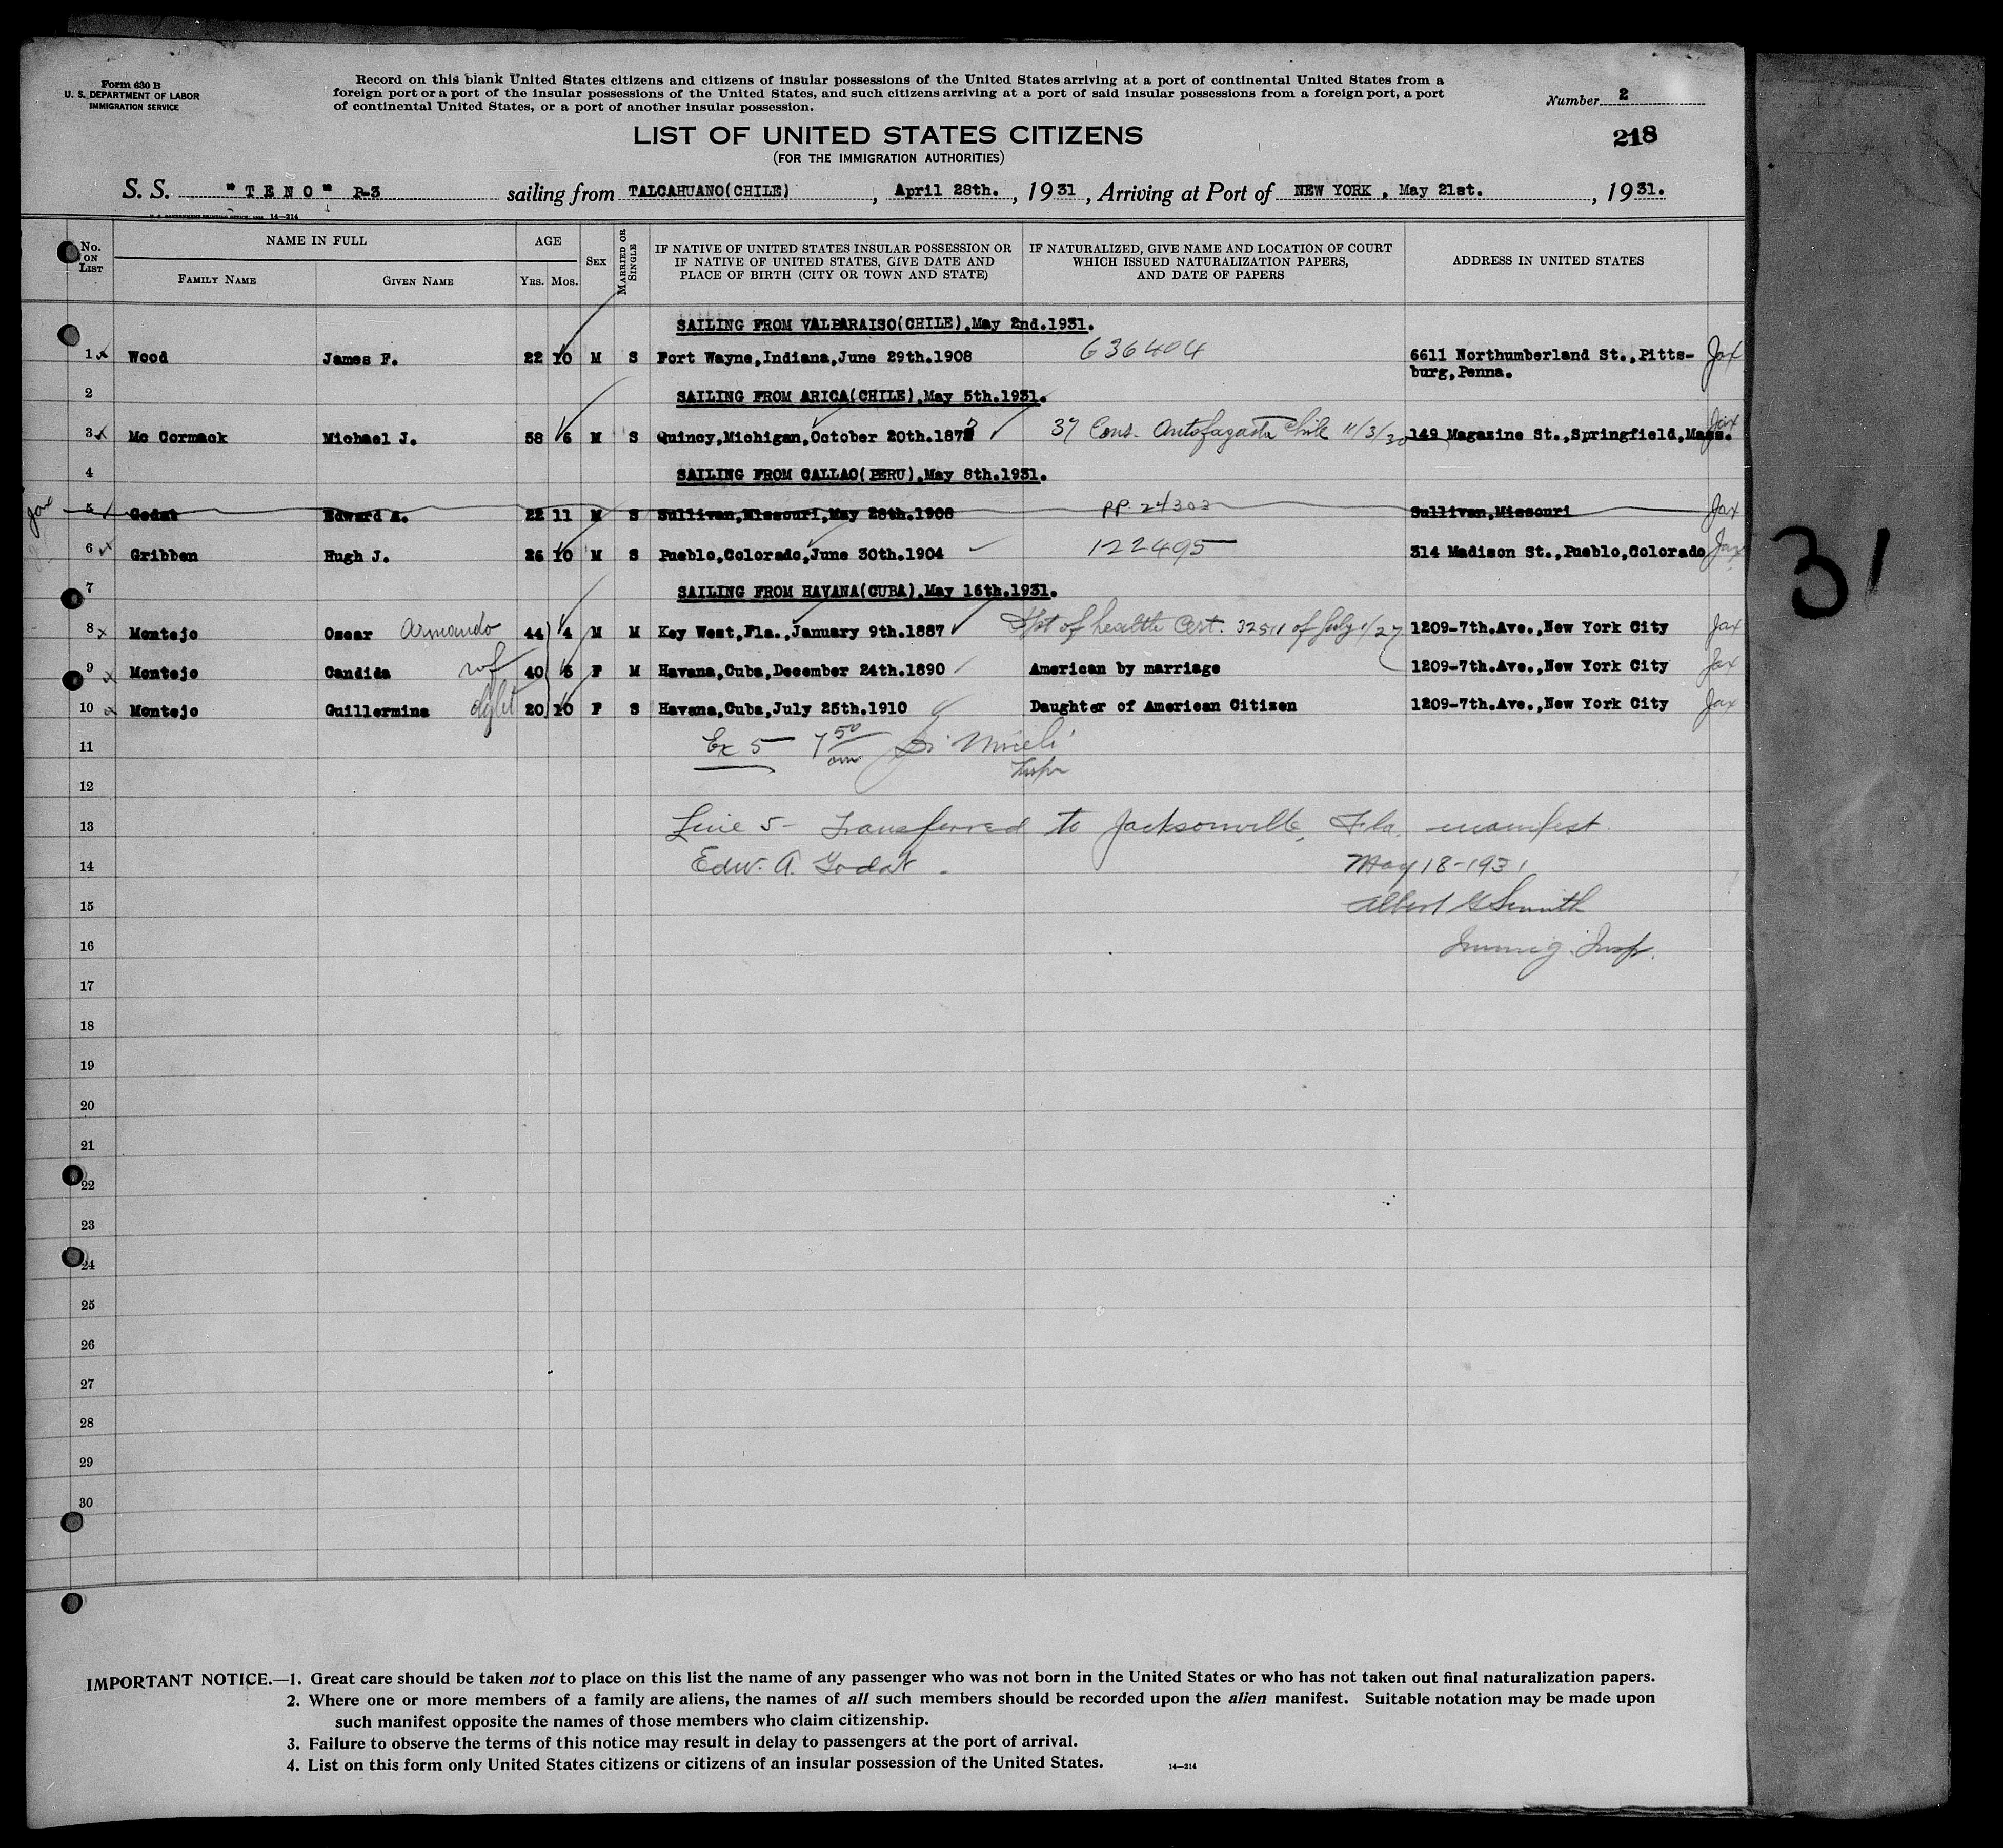 Form 630 B
U. S. DEPARTMENT OF LABOR
IMMIGRATION SERVICE
Record on this blank United States citizens and citizens of insular possessions of the United States arriving at a port of continental United States from a
foreign port or a port of the insular possessions of the United States, and such citizens arriving at a port of said insular possessions from a foreign port, a port
of continental United States, or a port of another insular possession.
Number 2
LIST OF UNITED STATES CITIZENS
218
(FOR THE IMMIGRATION AUTHORITIES)
S. S. "TENO" P-3 sailing from TALCAHUANO(CHILE) , April 28th. , 1931 , Arriving at Port of NEW YORK , May 21st. , 1931.
14—214
No. ON LIST NAME IN FULL AGE SEX MARRIED OR SINGLE IF NATIVE OF UNITED STATES INSULAR POSSESSION OR IF NATIVE OF UNITED STATES, GIVE DATE AND PLACE OF BIRTH (CITY OR TOWN AND STATE) IF NATURALIZED, GIVE NAME AND LOCATION OF COURT WHICH ISSUED NATURALIZATION PAPERS, AND DATE OF PAPERS ADDRESS IN UNITED STATES
FAMILY NAME GIVEN NAME YRS. MOS.
SAILING FROM VALPARAISO(CHILE),May 2nd.1931.
1 Wood James F. 22 10 M S Fort Wayne,Indiana,June 29th.1908 636404 6611 Northumberland St.,Pitts- Jax
burg,Penna.
2 SAILING FROM ARICA(CHILE),May 5th.1931.
3 Mc Cormack Michael J. 58 6 M S Quincy,Michigan,October 20th.187 37 Cons. Antofagasta Chile 11/3/30 149 Magazine St.,Springfield,Mass. Jax
4 SAILING FROM CALLAO(PERU),May 8th.1931.
Jax 5 Godat Edward A. 22 11 M S Sullivan,Missouri,May 28th.1908 PP 24303 Sullivan,Missouri Jax
6 Gribben Hugh J. 26 10 M S Pueblo,Colorado,June 30th.1904 122495 314 Madison St.,Pueblo,Colorado Jax
7 SAILING FROM HAVANA(CUBA),May 16th.1931.
8 Montejo Oscar Armando 44 4 M M Key West,Fla.,January 9th.1887 of health Cert. 32511 of July 1/27 1209-7th.Ave.,New York City Jax
9 Montejo Candida wf 40 5 F M Havana,Cuba,December 24th.1890 American by marriage 1209-7th.Ave.,New York City Jax
10 Montejo Guillermina dght 20 10 F S Havana,Cuba,July 25th.1910 Daughter of American Citizen 1209-7th.Ave.,New York City Jax
11 Ex 5 7 50 am
Inspr
12
13 Line 5 - Transferred to Jacksonville, Fla. manifest
14 Edw. A. Godat. May 18-1931
15 Albert G Smith
16 Immig. Insp.
17
18
19
20
21
22
23
24
25
26
27
28
29
30
31
IMPORTANT NOTICE.—1. Great care should be taken not to place on this list the name of any passenger who was not born in the United States or who has not taken out final naturalization papers.
2. Where one or more members of a family are aliens, the names of all such members should be recorded upon the alien manifest. Suitable notation may be made upon
such manifest opposite the names of those members who claim citizenship.
3. Failure to observe the terms of this notice may result in delay to passengers at the port of arrival.
4. List on this form only United States citizens or citizens of an insular possession of the United States.
14—214